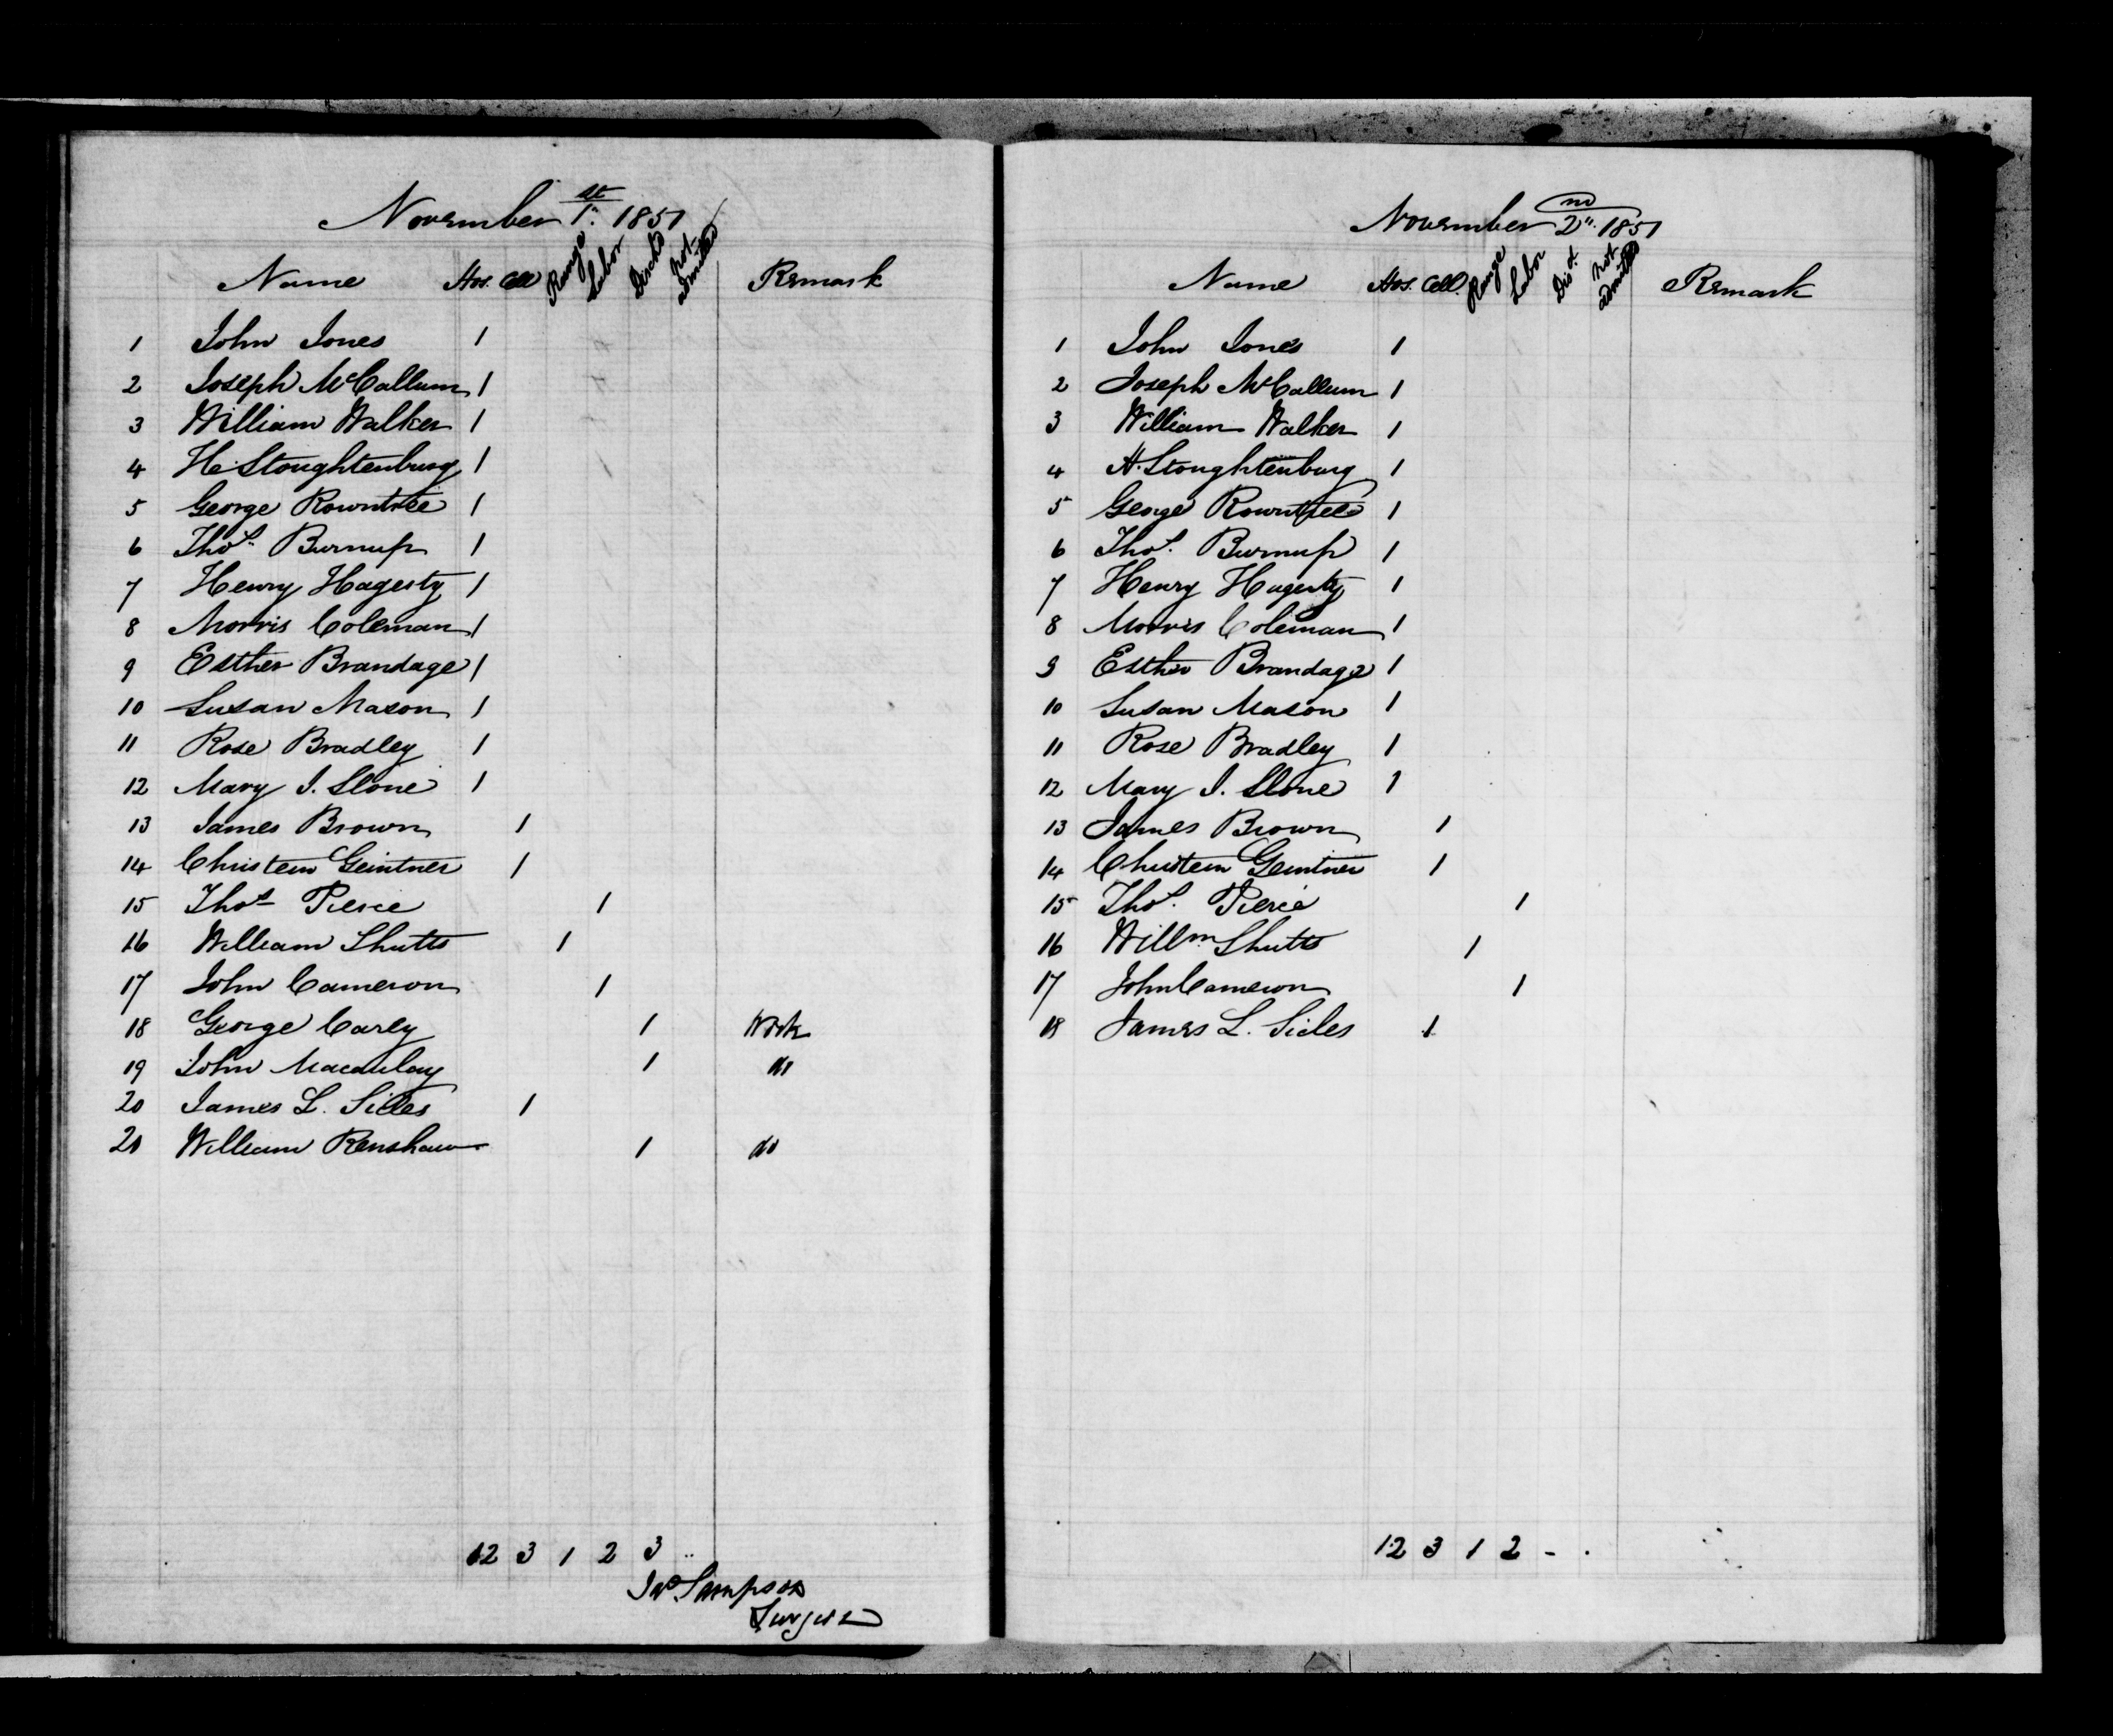 November 1st 1857
Name Hos. Cell Range Labor Disch'd not admitted Remark
1 John Jones 1
2 Joseph McCallum 1
3 William Walker 1
4 H. Stoughtenburg 1
5 George Rowntree 1
6 Thos. Burnup 1
7 Henry Hagesty 1
8 Morris Coleman 1
9 Esther Brandage 1
10 Susan Mason 1
11 Rose Bradley 1
12 Mary J. Slone 1
13 James Brown 1
14 Christein Geintner 1
15 Thos Pierce 1
16 William Shutts 1
17 John Cameron 1
18 George Carly 1 Work
19 John Macaulay 1 do
20 James L. Sicles 1
21 William Renshaw 1 do
12 3 1 2 3 ..
Jas. Sampson
Surgeon
November 2nd 1857
Name Hos. Cell. Range Labor Disd. not admitted Remark
1 John Jones 1
2 Joseph McCallum 1
3 William Walker 1
4 H. Stoughtenburg 1
5 George Rowntree 1
6 Thos. Burnup 1
7 Henry Hagesty 1
8 Morris Coleman 1
9 Esther Brandage 1
10 Susan Mason 1
11 Rose Bradley 1
12 Mary J. Slone 1
13 James Brown 1
14 Christein Geintner 1
15 Thos. Pierce 1
16 Willm Shutts 1
17 John Cameron 1
18 James L. Sicles 1
12 3 1 2 - .